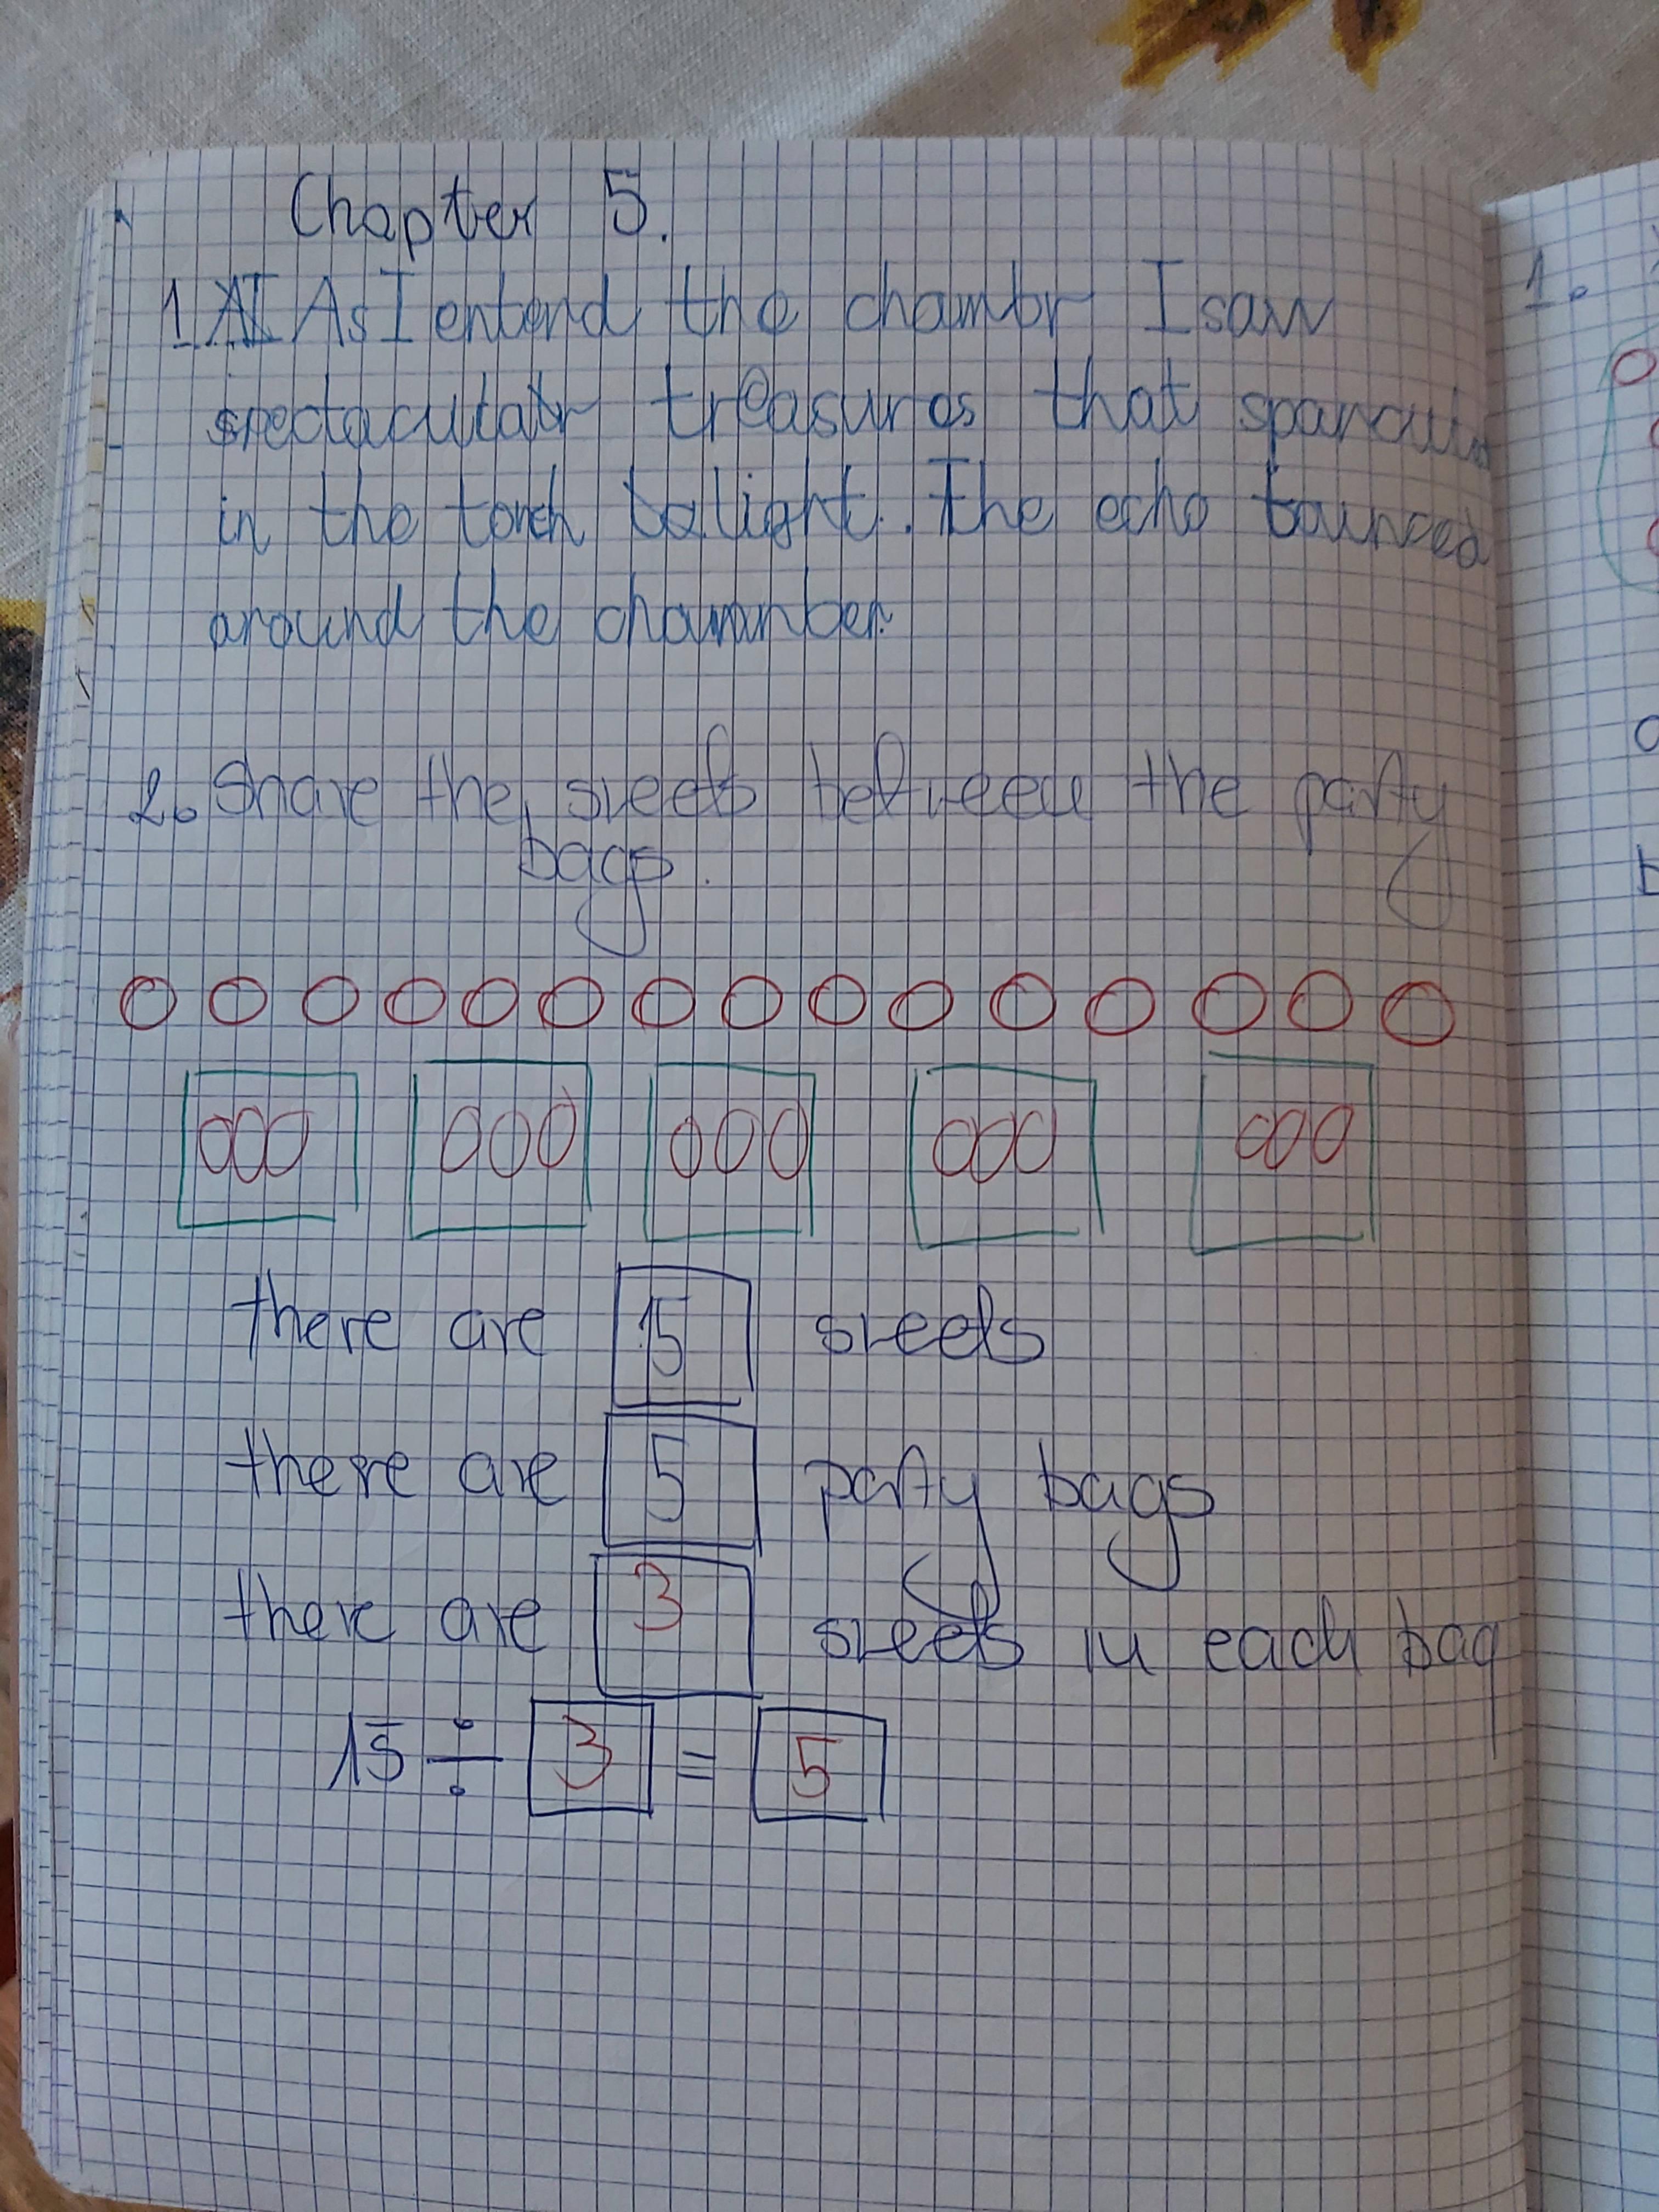 Chapter 5.
1. As I enterd the chambr I saw
spectacular treasures that
in the torch light. The echo bounced
around the chamber.
2. Share the sweets between the party
bags.
there are 15 sweets
there are 5 party bags
there are 3 sweets in each bag
15 ÷ 3 = 5
1.